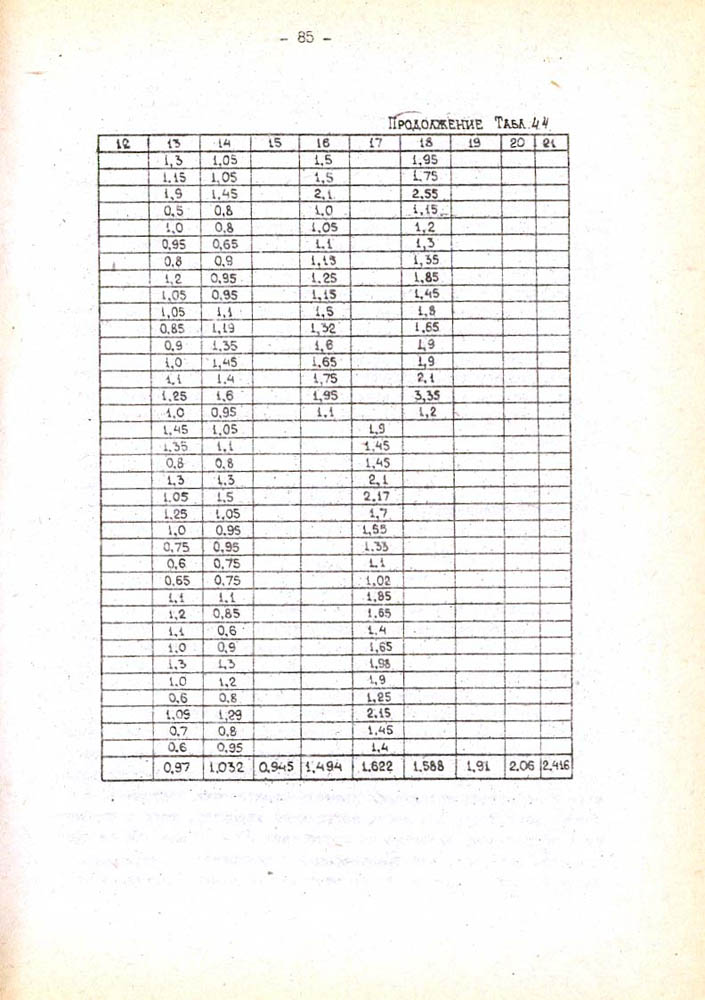 - 85 -
Продолжение Табл. 4.4
12 13 14 15 16 17 18 19 20 21
1,3 1,05 1,5 1,95
1.15 1,05 1,5 1.75
1,9 1,45 2,1 2,55
0,5 0,8 1,0 1,15
1.0 0,8 1,05 1,2
0,95 0,65 1.1 1,3
0,8 0,9 1,15 1,35
1,2 0,95 1.25 1,85
1,05 0,95 1,15 1,45
1,05 1,1 1,5 1,8
0,85 1,19 1,32 1,65
0,9 1,35 1,6 1,9
1,0 1,45 1,65 1,9
1,1 1.4 1,75 2.1
1.25 1,6 1,95 3,35
1,0 0,95 1.1 1,2
1,45 1,05 1,9
1,35 1,1 1,45
0,8 0,8 1,45
1,3 1,3 2,1
1.05 1,5 2,17
1,25 1,05 1,7
1,0 0,95 1,55
0,75 0,95 1.33
0,6 0,75 1,1
0,65 0,75 1,02
1,1 1,1 1,85
1,2 0,85 1,65
1,1 0,6 1.4
1.0 0,9 1,65
1,3 1,3 1,98
1.0 1,2 1,9
0,6 0,8 1,25
1,05 1,29 2.15
0,7 0,8 1,45
0,6 0,95 1,4
0,97 1,032 0,945 1,494 1.622 1.588 1,91 2,06 2,416